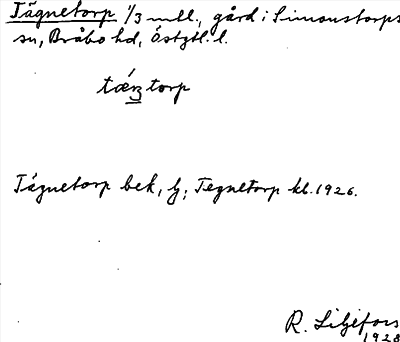 Tägnetorp 1/3 mtl., gård i Simonstorps
sn, Bråbo hd, Östgtl. l.
torp
Tägnetorp bek, Tegnetorp kl. 1926.
R. Liljefors
1928